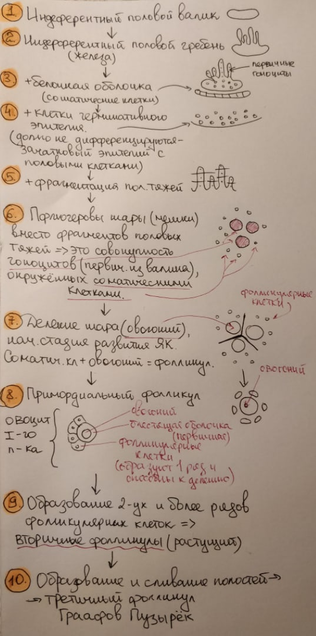 1. Индеферентный половой валик
2. Индеферентный половой гребень
(железа)
первичные
гоноциты
3. + белочная оболочка
(соматические клетки)
4. + клетки герминативного
эпителия.
(долго не дифференцируются-
зачатковый эпителий с
половыми клетками)
5. + фрагментация пол. тяжей
6. Пфлюгеровы шары (мешки)
вместо фрагментов половых
тяжей => это совокупность
гоноцитов (первич. из валика),
окружённых соматическими
клетками.
фолликулярные
клетки
7. Деление шара (овогоний),
нач. стадия развития ЯК.
Соматич. кл + овогоний = фолликул.
овогоний
8. Примордиальный фолликул
овоцит
I-го
п-ка
овогоний
блестящая оболочка
(первичная)
фолликулярные
клетки
(образует 1 ряд и
способны к делению)
9. Образование 2-ух и более рядов
фолликулярных клеток =>
вторичные фолликулы (растущие)
10. Образование и сливание полостей →
→ третичный фолликул
Граафов Пузырёк